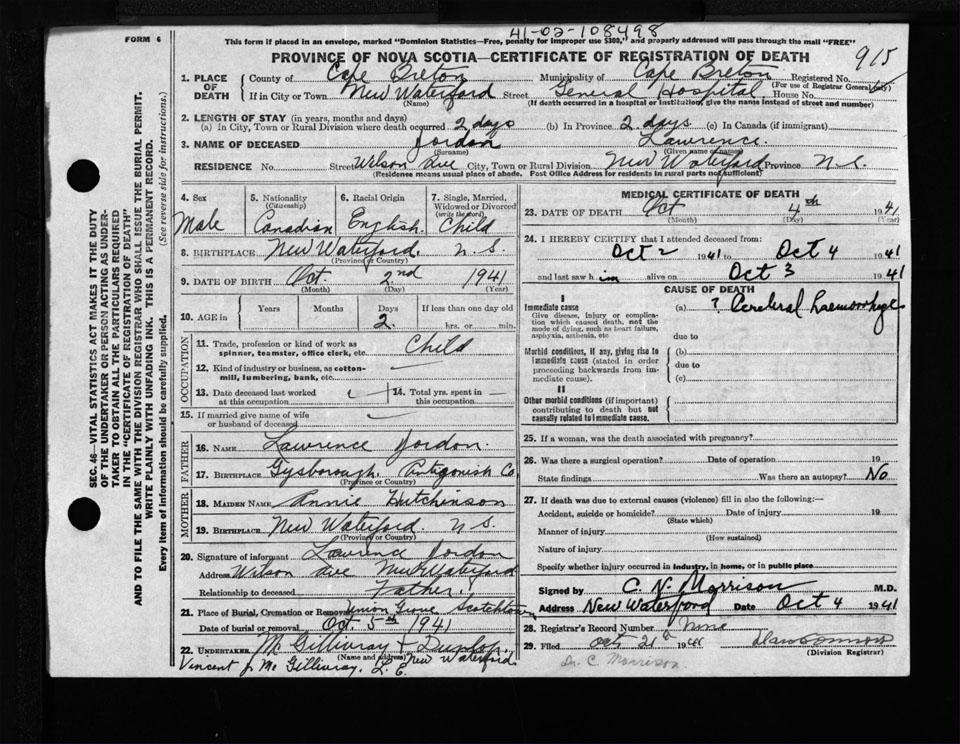 41-02-108498
FORM 6
This form if placed in an envelope, marked "Dominion Statistics—Free, penalty for improper use $300," and properly addressed will pass through the mail "FREE"
PROVINCE OF NOVA SCOTIA—CERTIFICATE OF REGISTRATION OF DEATH
915
SEC. 46—VITAL STATISTICS ACT MAKES IT THE DUTY
OF THE UNDERTAKER OR PERSON ACTING AS UNDER-
TAKER TO OBTAIN ALL THE PARTICULARS REQUIRED
IN THE "CERTIFICATE OF REGISTRATION OF DEATH"
AND TO FILE THE SAME WITH THE DIVISION REGISTRAR WHO SHALL ISSUE THE BURIAL PERMIT.
WRITE PLAINLY WITH UNFADING INK. THIS IS A PERMANENT RECORD.
Every item of information should be carefully supplied. (See reverse side for instructions.)
1. PLACE OF DEATH County of Cape Breton Municipality of Cape Breton Registered No.
(For use of Registrar General only)
If in City or Town New Waterford Street General Hospital House No.
(Name) (If death occurred in a hospital or institution, give the name instead of street and number)
2. LENGTH OF STAY (in years, months and days)
(a) In City, Town or Rural Division where death occurred 2 days (b) In Province 2 days (c) In Canada (if immigrant)
3. NAME OF DECEASED Jordon Lawrence
(Surname) (Given name or names)
RESIDENCE No. Street Wilson Ave City, Town or Rural Division New Waterford Province N.S.
(Residence means usual place of abode. Post Office Address for residents in rural parts not sufficient)
4. Sex
Male
5. Nationality
(Citizenship)
Canadian
6. Racial Origin
English
7. Single, Married,
Widowed or Divorced
(write the word)
Child
8. BIRTHPLACE New Waterford. N.S.
(Province or Country)
9. DATE OF BIRTH Oct. 2nd 1941
(Month) (Day) (Year)
10. AGE in Years Months Days If less than one day old
2. hrs. or min.
OCCUPATION
11. Trade, profession or kind of work as
spinner, teamster, office clerk, etc. Child
12. Kind of industry or business, as cotton-
mill, lumbering, bank, etc.
13. Date deceased last worked
at this occupation
14. Total yrs. spent in
this occupation
15. If married give name of wife
or husband of deceased
FATHER
16. NAME Lawrence Jordon.
17. BIRTHPLACE Gysborough Antigonish Co.
(Province or Country)
MOTHER
18. MAIDEN NAME Annie Hutchinson
19. BIRTHPLACE New Waterford. N.S.
(Province or Country)
20. Signature of informant Lawrence Jordon
Address Wilson Ave New Waterford
Relationship to deceased Father.
21. Place of Burial, Cremation or Removal Union Grove Scotchtown
Date of burial or removal Oct. 5th 1941
22. UNDERTAKER Mc Gillivray & Dunlop.
(Name and address) New Waterford.
Vincent J. Mc Gillivray. L.E.
MEDICAL CERTIFICATE OF DEATH
23. DATE OF DEATH Oct 4th 1941
(Month) (Day) (Year)
24. I HEREBY CERTIFY that I attended deceased from:
Oct 2 1941 to Oct 4 1941
and last saw him alive on Oct 3 1941
CAUSE OF DEATH
I
Immediate cause (a) ? Cerebral haemorrhage
Give disease, injury or complica-
tion which caused death, not the
mode of dying, such as heart failure,
asphyxia, asthenia, etc
due to
Morbid conditions, if any, giving rise to
immediate cause (stated in order
proceeding backwards from im-
mediate cause).
(b)
due to
(c)
II
Other morbid conditions (if important)
contributing to death but not
causally related to immediate cause.
25. If a woman, was the death associated with pregnancy?
26. Was there a surgical operation? Date of operation 19
State findings Was there an autopsy? No
27. If death was due to external causes (violence) fill in also the following:—
Accident, suicide or homicide? Date of injury 19
(State which)
Manner of injury
(How sustained)
Nature of injury
Specify whether injury occurred in industry, in home, or in public place
Signed by C N. Morrison M.D.
Address New Waterford Date Oct 4 1941
28. Registrar's Record Number None
29. Filed Oct 21st 19
(Division Registrar)
Dr. C. Morrison.